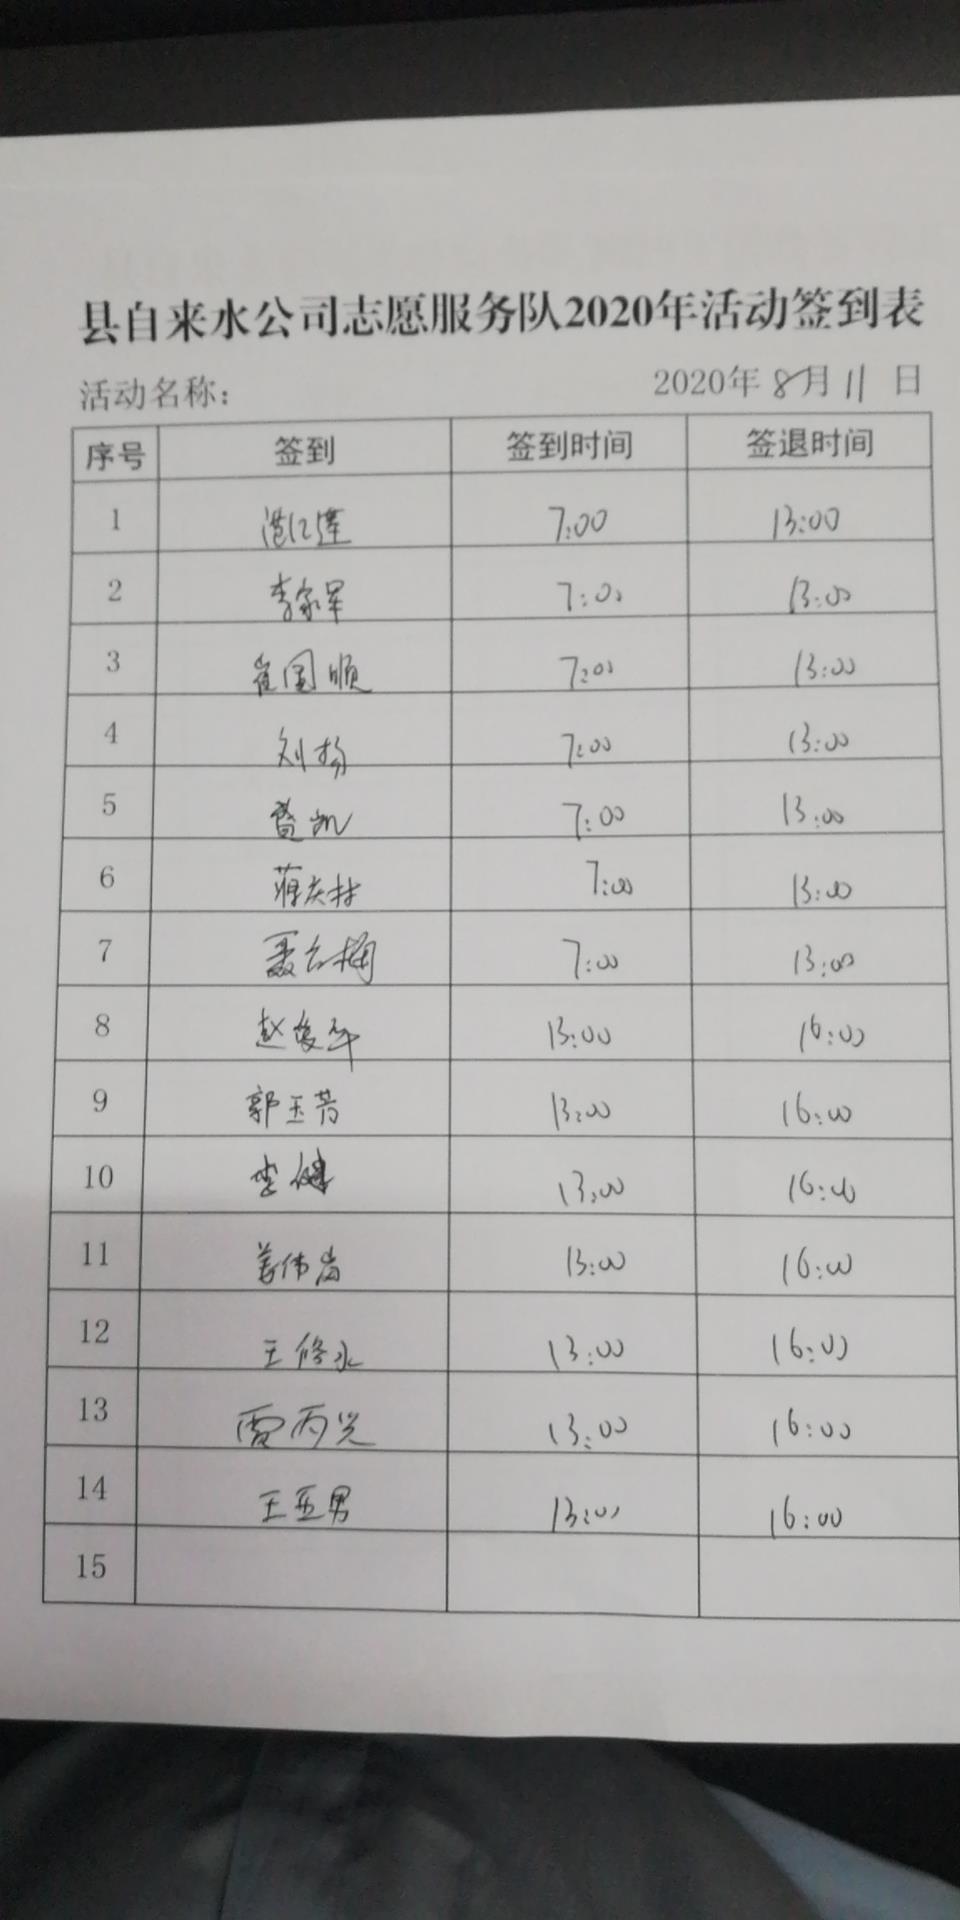 县自来水公司志愿服务队2020年活动签到表
活动名称： 2020年 8月 11 日
序号 签到 签到时间 签退时间
1 7:00 13:00
2 李家军 7:00 13:00
3 崔国顺 7:00 13:00
4 刘扬 7:00 13:00
5 曹凯 7:00 13:00
6 蒋庆林 7:00 13:00
7 聂云梅 7:00 13:00
8 赵俊平 13:00 16:00
9 郭玉芳 13:00 16:00
10 李健 13:00 16:00
11 姜伟尚 13:00 16:00
12 王修永 13:00 16:00
13 贾丙光 13:00 16:00
14 王亚男 13:00 16:00
15